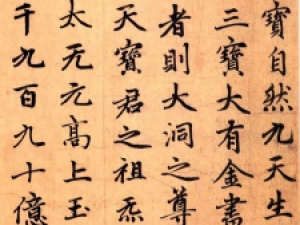 寶自然九天生
三寶大有金書
者則大洞之尊
天寶君之祖炁
太无元髙上玉
千九百九十億